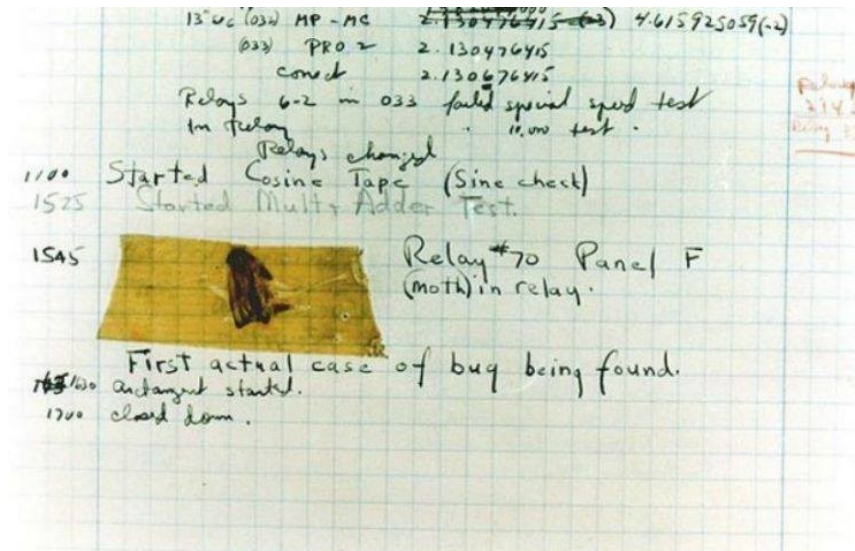 13"uc (032) MP - MC 2.130476415 (-3) 4.615925059(-2)
(033) PRO 2 2.130476415
conect 2.130676415
Relays 6-2 in 033 failed special speed test
In Relay 10,000 test.
Relays changed
1100 Started Cosine Tape (Sine check)
1525 Started Mult+ Adder Test.
1545 Relay #70 Panel F
(moth) in relay.
First actual case of bug being found.
1630 arctangent started.
1700 closed down.